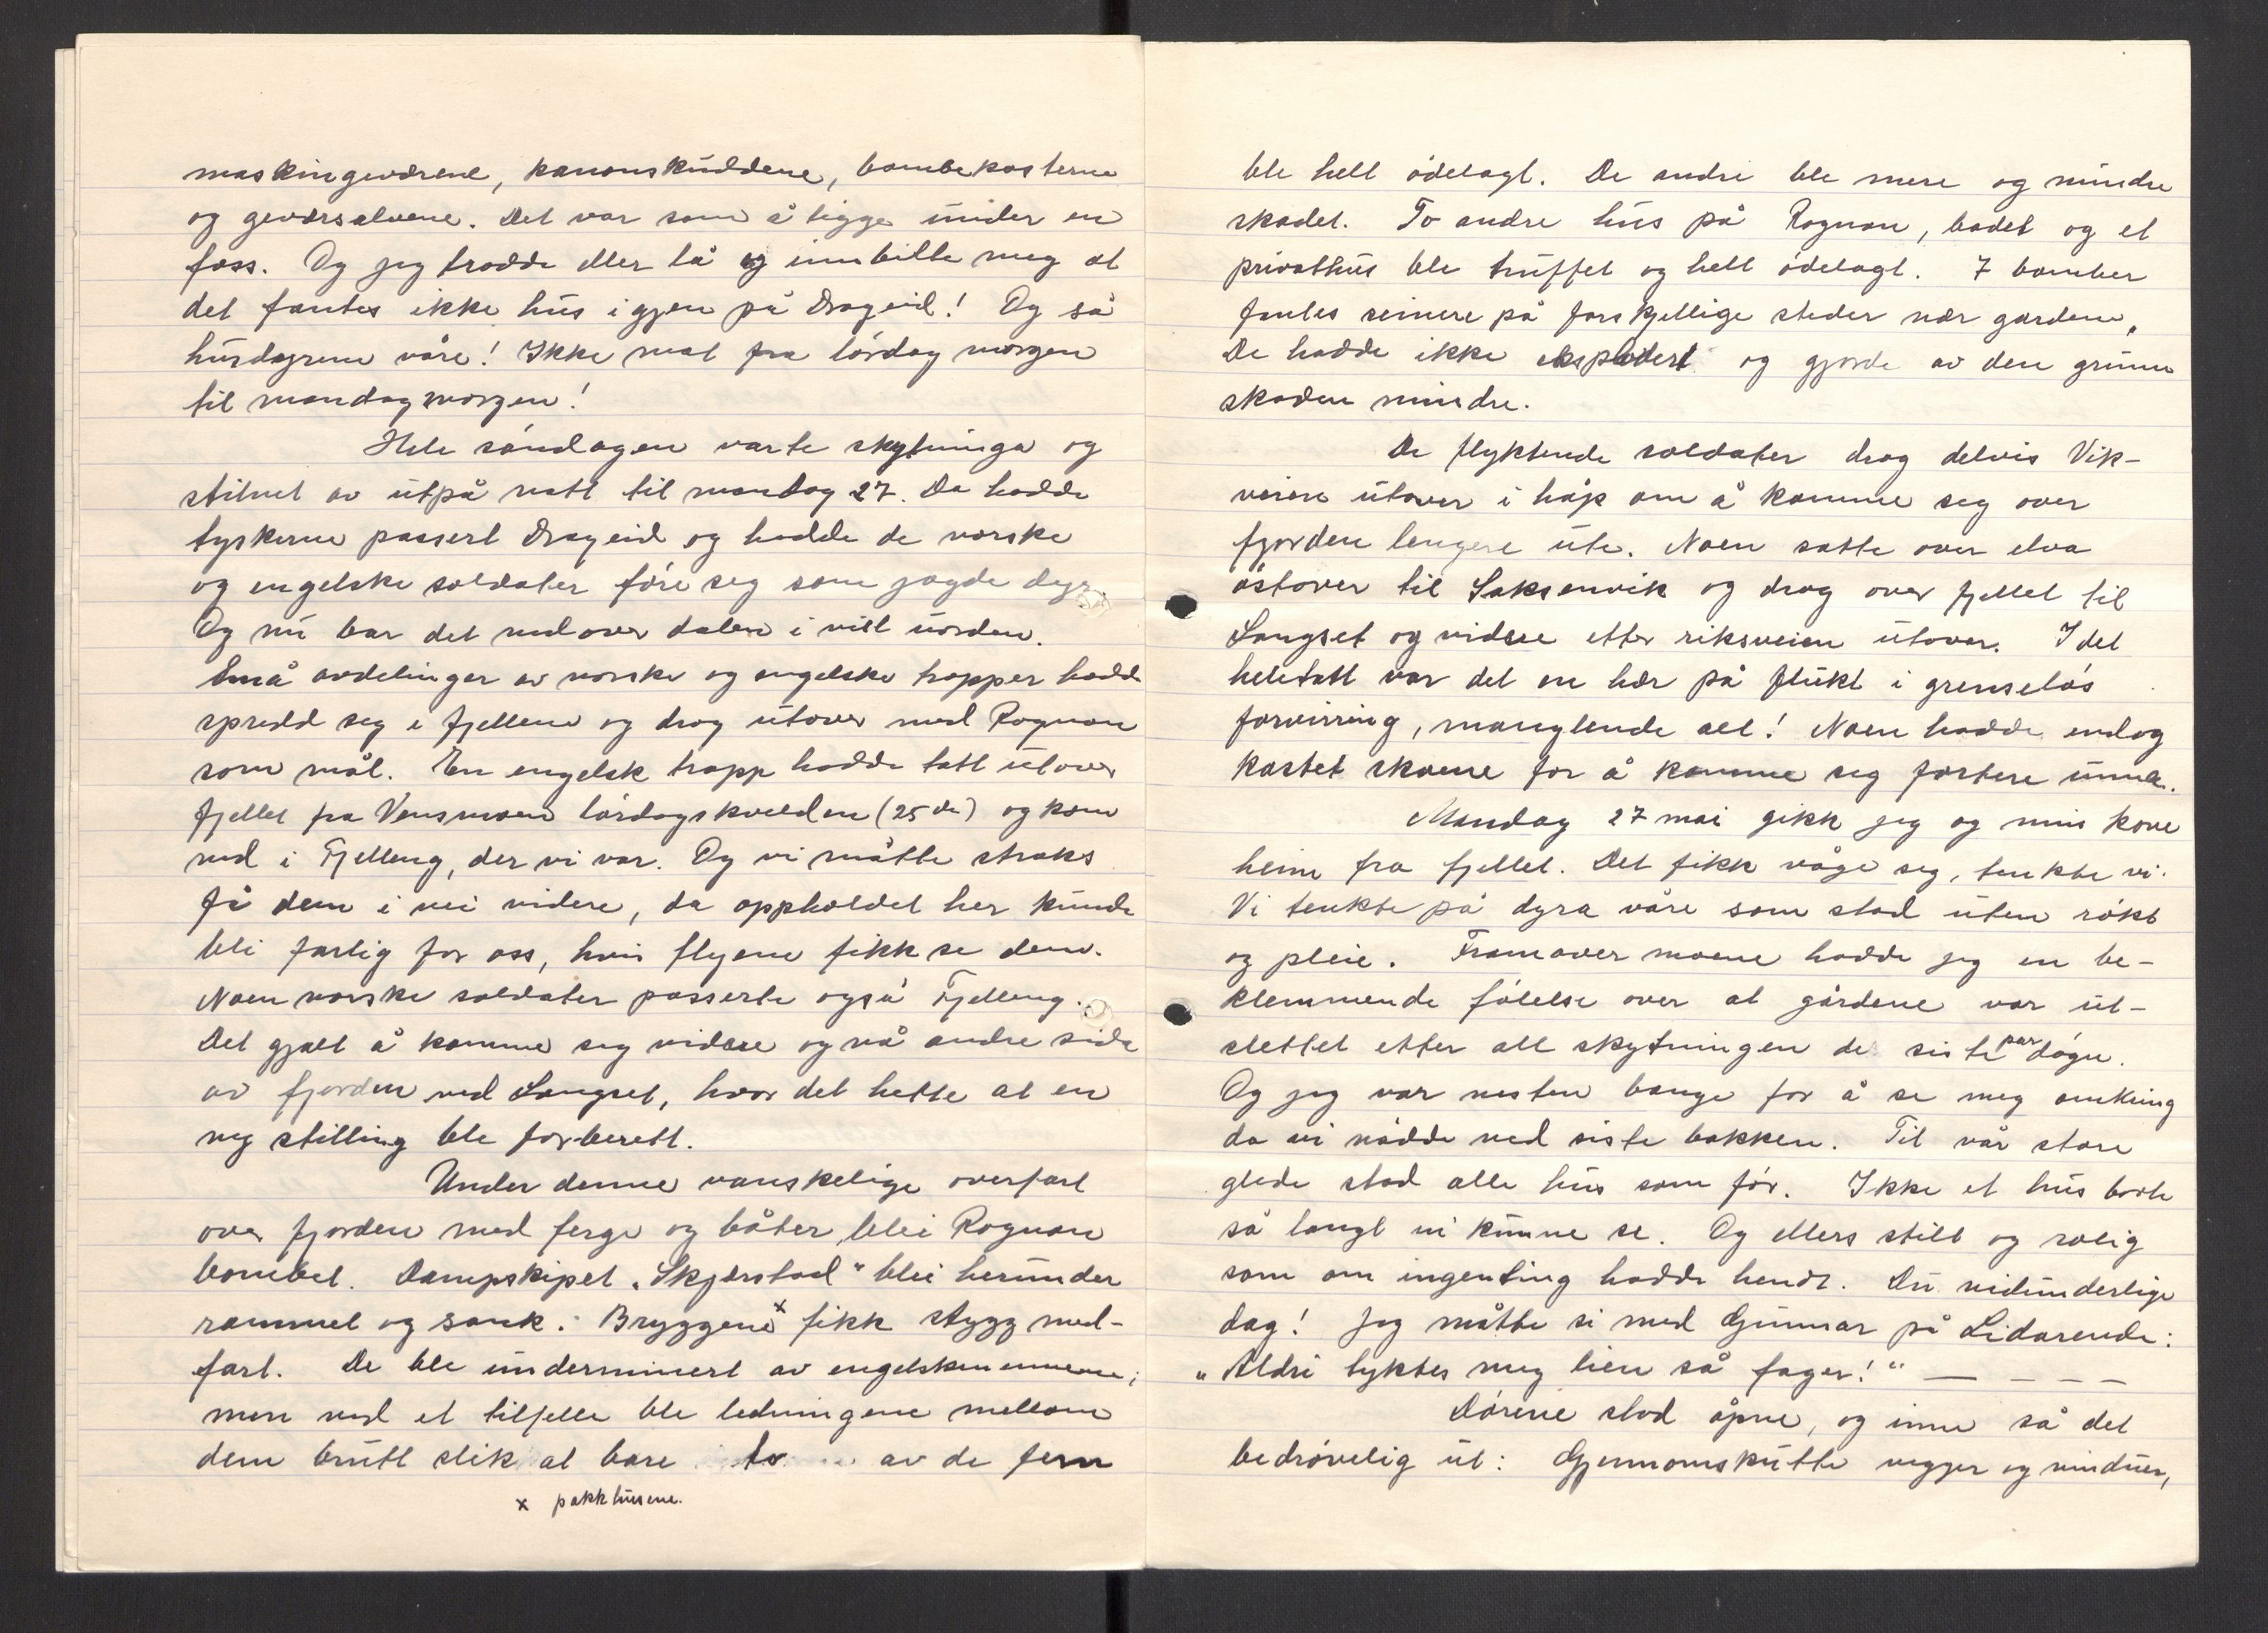 maskingeværene, kanonskuddene, bombekasterne
og geværsalvene. Det var som å ligge under en
foss. Og jeg trodde eller lå og innbilte meg at
det fantes ikke hus igjen på Drageid! Og så
husdyrene våre! Ikke mat fra lørdag morgen
til mandag morgen!
Hele søndagen varte skytninga og
stilnet av utpå natt til mandag 27. Da hadde
tyskerne passert Drageid og hadde de norske
og engelske soldater føre seg som jagde dyr
Og nu bar det nedover dalen i vill uorden.
Små avdelinger av norske og engelske tropper hadde
spredd seg i fjellene og drog utover med Rognan
som mål. En engelsk tropp hadde tatt utover
fjellet fra Vensmoen lørdagskvelden (25de) og kom
ned i Fjelleng, der vi var. Og vi måtte straks
få dem i vei videre, da oppholdet her kunde
bli farlig for oss, hvis flyene fikk se dem.
Noen norske soldater passerte også Fjelleng.
Det gjalt å komme seg videre og nå andre side
av fjorden ved Langset, hvor det hette at en
ny stilling ble forberett.
Under denne vanskelige overfart
over fjorden med ferge og båter, blei Rognan
bombet. Dampskipet „Skjerstad“ blei herunder
rammet og sank. Bryggene x fikk stygg med-
fart. De ble underminert av engelskmennene;
men ved et tilfelle ble ledningene mellom
dem brutt slik at bare to av de fem
x pakkhusene.
ble helt ødelagt. De andre ble mere og mindre
skadet. To andre hus på Rognan, badet og et
privathus ble truffet og helt ødelagt. 7 bomber
fantes seinere på forskjellige steder nær gardene,
De hadde ikke eksplodert og gjorde av den grunn
skaden mindre.
De flyktende soldater drog delvis Vik-
veien utover i håp om å komme seg over
fjorden lengere ute. Noen satte over elva
østover til Saksenvik og drog over fjellet til
Langset og videre etter riksveien utover. I det
heletatt var det en hær på flukt i grenseløs
forvirring, manglende alt! Noen hadde endog
kastet skoene for å komme seg fortere unna.
Mandag 27 mai gikk jeg og min kone
heim fra fjellet. Det fikk våge seg, tenkte vi.
Vi tenkte på dyra våre som stod uten røkt
og pleie. Framover moene hadde jeg en be-
klemmende følelse over at gårdene var ut-
slettet etter all skytningen de siste par døgn.
Og jeg var nesten bange for å se meg omkring
da vi nådde ned siste bakken. Til vår store
glede stod alle hus som før. Ikke et hus borte
så langt vi kunne se. Og ellers still og rolig
som om ingenting hadde hendt. Du vidunderlige
dag! Jeg måtte si med Gunnar på Lidarende:
„Aldri tyktes meg lien så fager!“ — — — —
Dørene stod åpne, og inne så det
bedrøvelig ut: Gjennomskutte vegger og vinduer,